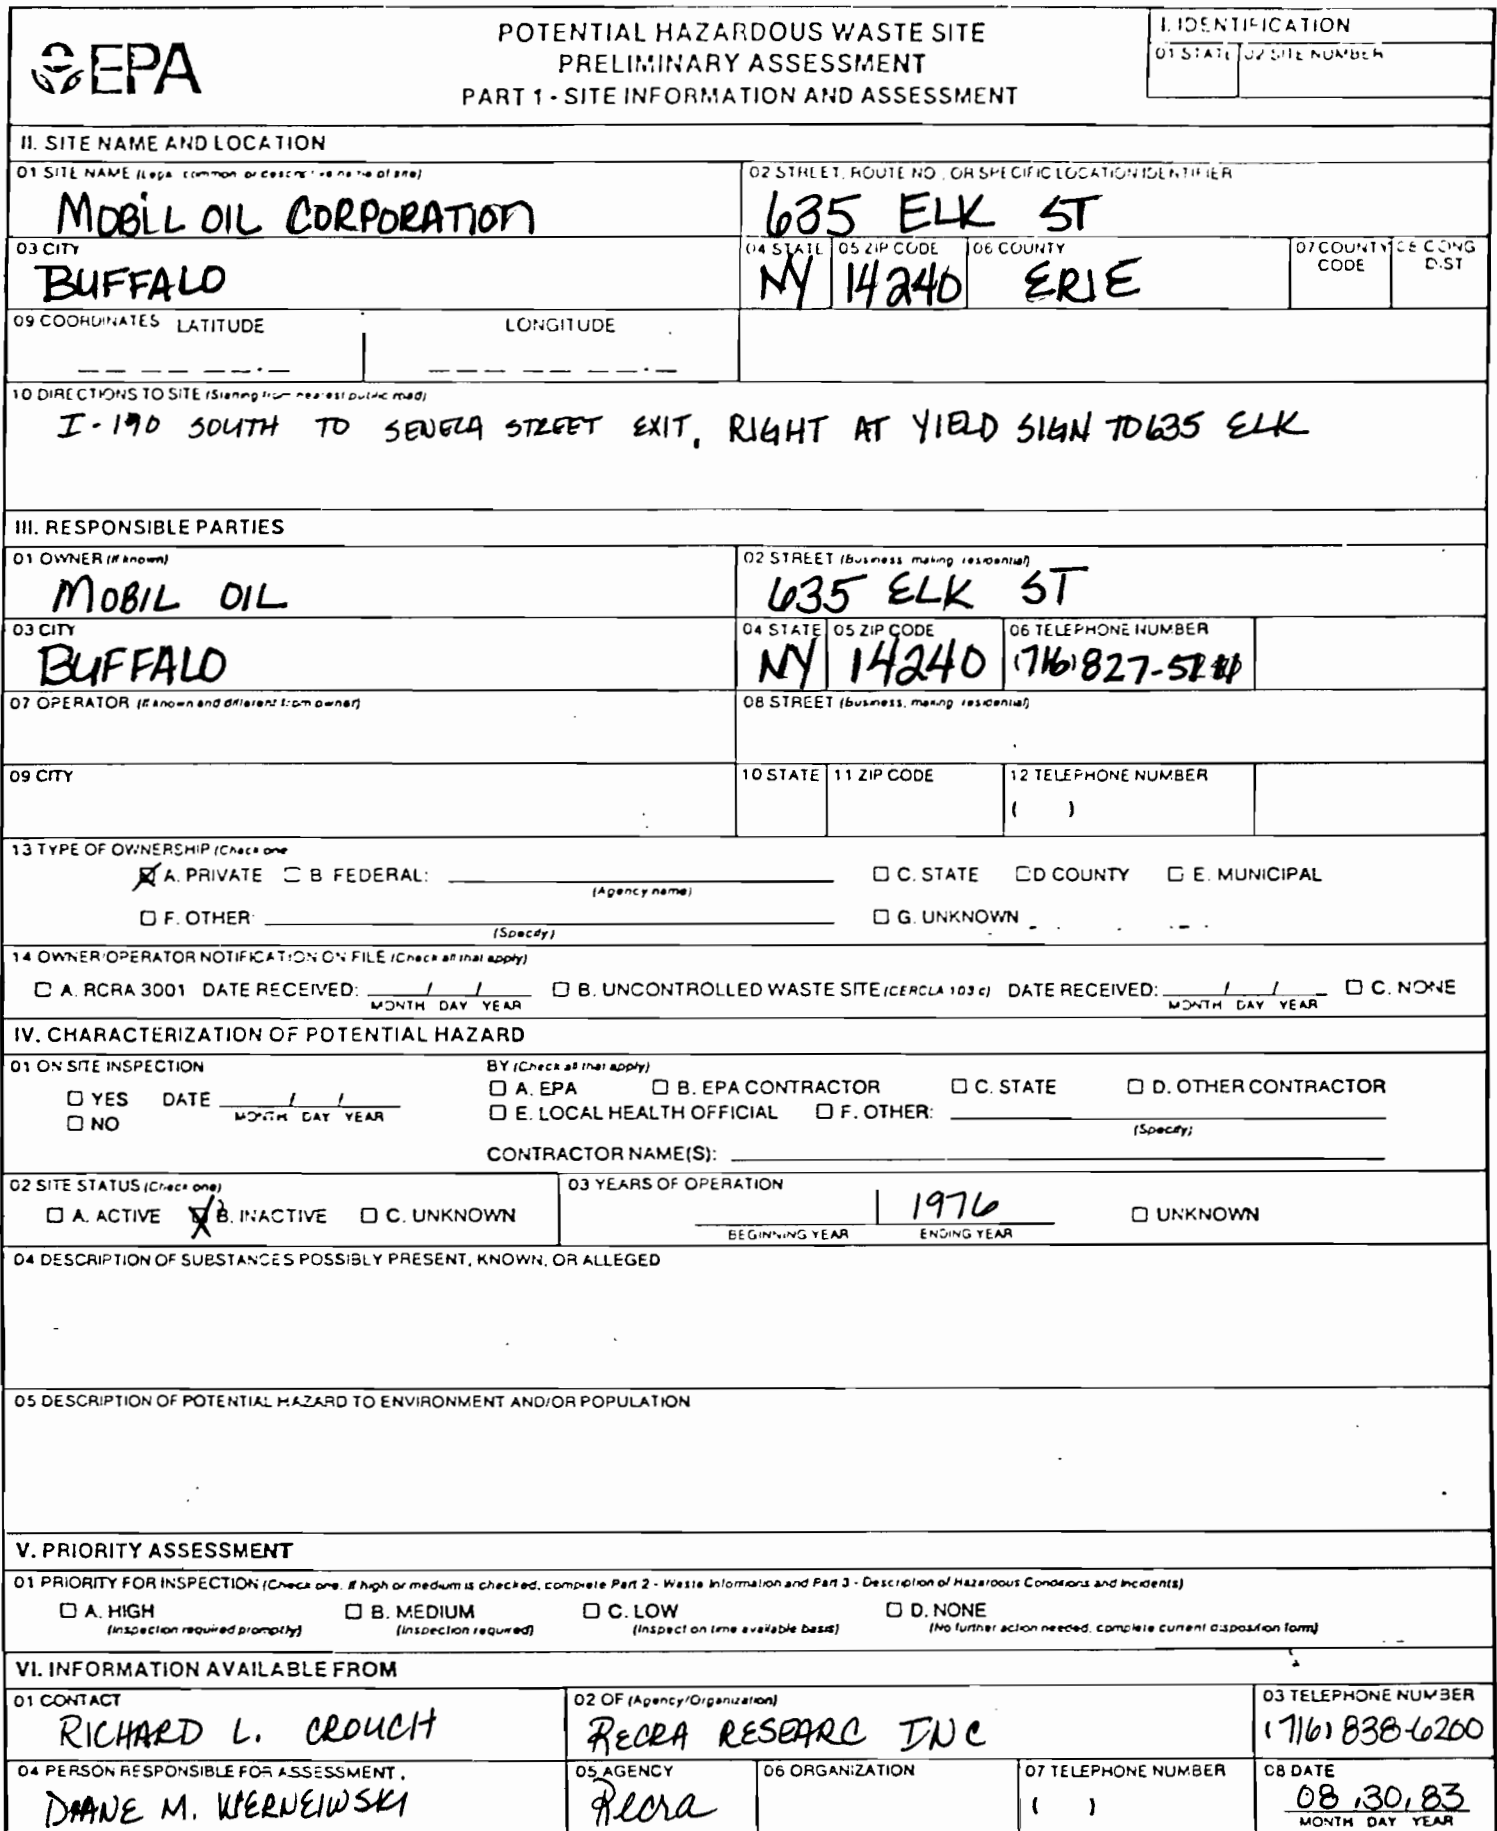 EPA
POTENTIAL HAZARDOUS WASTE SITE
PRELIMINARY ASSESSMENT
PART 1 - SITE INFORMATION AND ASSESSMENT
I. IDENTIFICATION
01 STATE 02 SITE NUMBER
II. SITE NAME AND LOCATION
01 SITE NAME (Legal, common, or descriptive name of site) 02 STREET, ROUTE NO., OR SPECIFIC LOCATION IDENTIFIER
MOBIL OIL CORPORATION 635 ELK ST
03 CITY 04 STATE 05 ZIP CODE 06 COUNTY 07 COUNTY CODE 08 CONG DIST
BUFFALO NY 14240 ERIE
09 COORDINATES LATITUDE LONGITUDE
10 DIRECTIONS TO SITE (Starting from nearest public road)
I-190 SOUTH TO SENECA STREET EXIT, RIGHT AT YIELD SIGN TO 635 ELK
III. RESPONSIBLE PARTIES
01 OWNER (if known) 02 STREET (Business, mailing, residential)
MOBIL OIL 635 ELK ST
03 CITY 04 STATE 05 ZIP CODE 06 TELEPHONE NUMBER
BUFFALO NY 14240 (716) 827-
07 OPERATOR (if known and different from owner) 08 STREET (Business, mailing, residential)
09 CITY 10 STATE 11 ZIP CODE 12 TELEPHONE NUMBER
( )
13 TYPE OF OWNERSHIP (Check one)
A. PRIVATE B. FEDERAL: (Agency name) C. STATE D COUNTY E. MUNICIPAL
F. OTHER: (Specify) G. UNKNOWN
14 OWNER/OPERATOR NOTIFICATION ON FILE (Check all that apply)
A. RCRA 3001 DATE RECEIVED: / / B. UNCONTROLLED WASTE SITE (CERCLA 103 c) DATE RECEIVED: / / C. NONE
MONTH DAY YEAR MONTH DAY YEAR
IV. CHARACTERIZATION OF POTENTIAL HAZARD
01 ON SITE INSPECTION BY (Check all that apply)
YES DATE / / A. EPA B. EPA CONTRACTOR C. STATE D. OTHER CONTRACTOR
NO MONTH DAY YEAR E. LOCAL HEALTH OFFICIAL F. OTHER:
(Specify)
CONTRACTOR NAME(S):
02 SITE STATUS (Check one) 03 YEARS OF OPERATION
A. ACTIVE B. INACTIVE C. UNKNOWN 1976 UNKNOWN
BEGINNING YEAR ENDING YEAR
04 DESCRIPTION OF SUBSTANCES POSSIBLY PRESENT, KNOWN, OR ALLEGED
05 DESCRIPTION OF POTENTIAL HAZARD TO ENVIRONMENT AND/OR POPULATION
V. PRIORITY ASSESSMENT
01 PRIORITY FOR INSPECTION (Check one. If high or medium is checked, complete Part 2 - Waste Information and Part 3 - Description of Hazardous Conditions and Incidents)
A. HIGH B. MEDIUM C. LOW D. NONE
(Inspection required promptly) (Inspection required) (Inspect on time available basis) (No further action needed, complete current disposition form)
VI. INFORMATION AVAILABLE FROM
01 CONTACT 02 OF (Agency/Organization) 03 TELEPHONE NUMBER
RICHARD L. CROUCH RECRA RESEARC INC (716) 838-6200
04 PERSON RESPONSIBLE FOR ASSESSMENT 05 AGENCY 06 ORGANIZATION 07 TELEPHONE NUMBER 08 DATE
DIANE M. WERNEIWSKI Recra ( ) 08,30,83
MONTH DAY YEAR